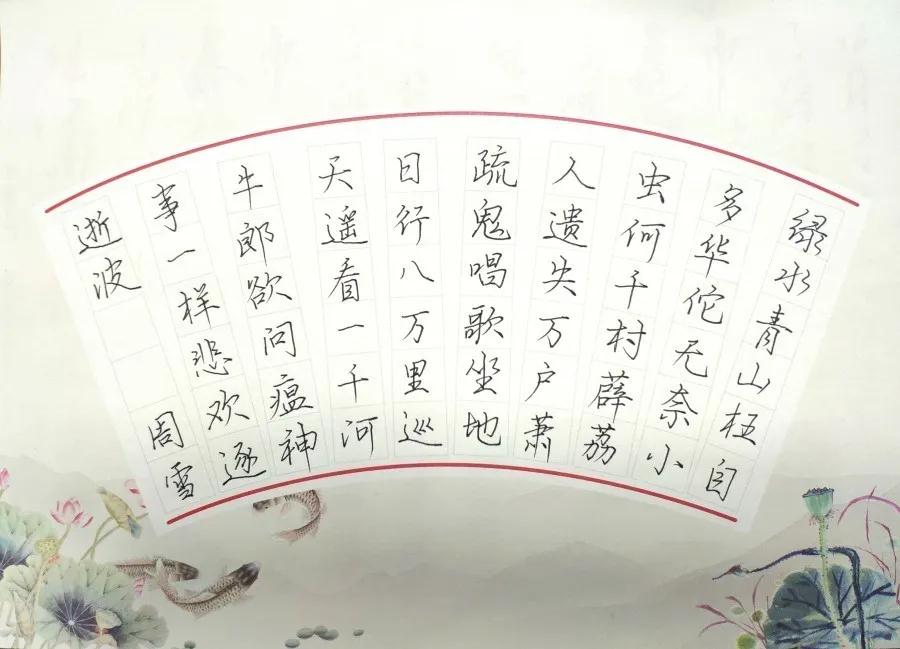 绿水青山枉自
多华佗无奈小
虫何千村薜荔
人遗失万户萧
疏鬼唱歌坐地
日行八万里巡
天遥看一千河
牛郎欲问瘟神
事一样悲欢逐
逝波 周雪